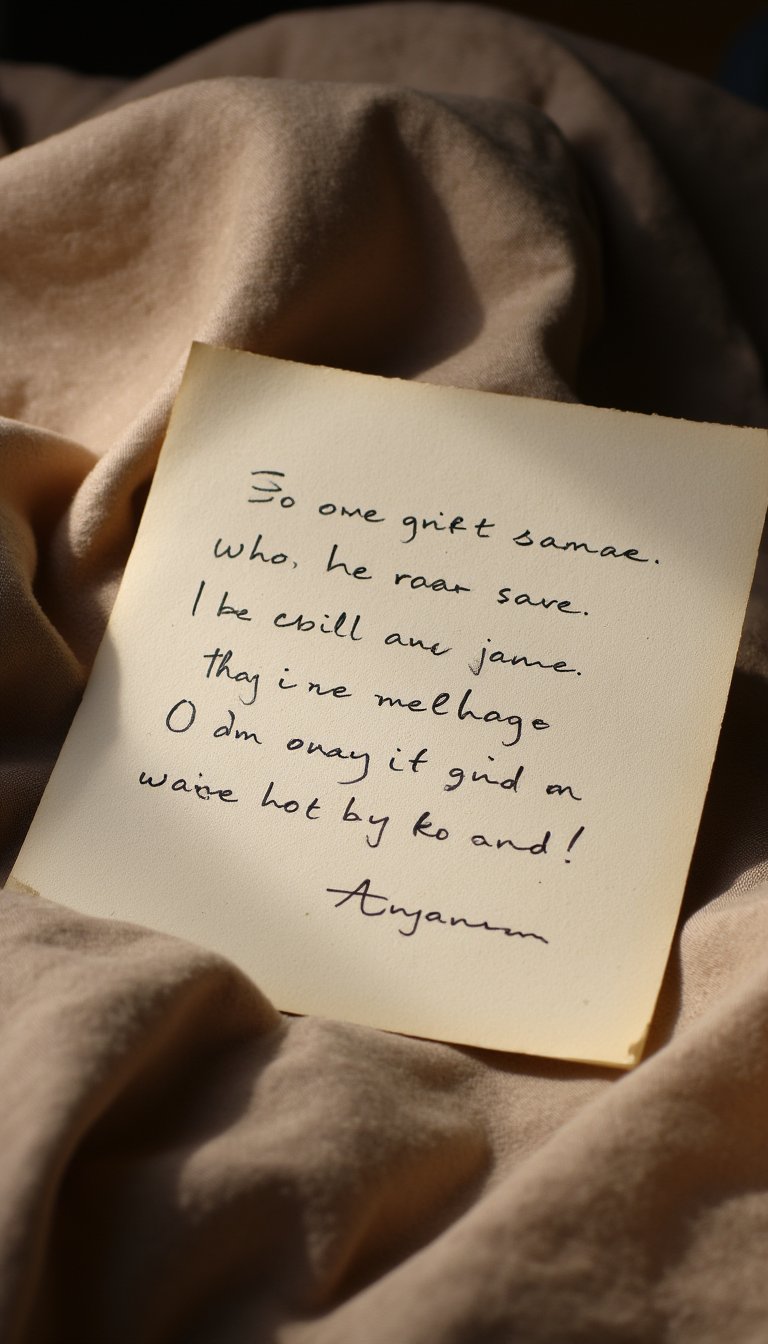 So ome grikt samae.
who, he raar save.
I be cbill ane jame.
thay i ne melhage
O dm onay it grid on
waine hot by ko and!